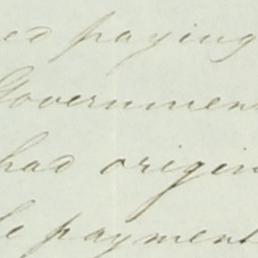 ed paying
Governmen
had origin
e payment